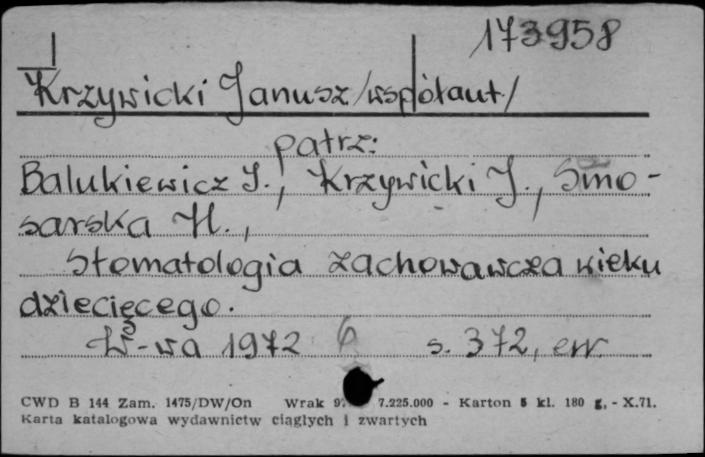 173958
Krzywicki Janusz /współaut/
patrz:
Balukiewicz I., Krzywicki J., Smo-
sarska H.,
Stomatologia zachowawcza wieku
dziecięcego.
W-wa 1972 6 s. 372, err.
CWD B 144 Zam. 1475/DW/On Wrak 7.225.000 - Karton 5 kl. 180 g. - X.71.
Karta katalogowa wydawnictw ciągłych i zwartych